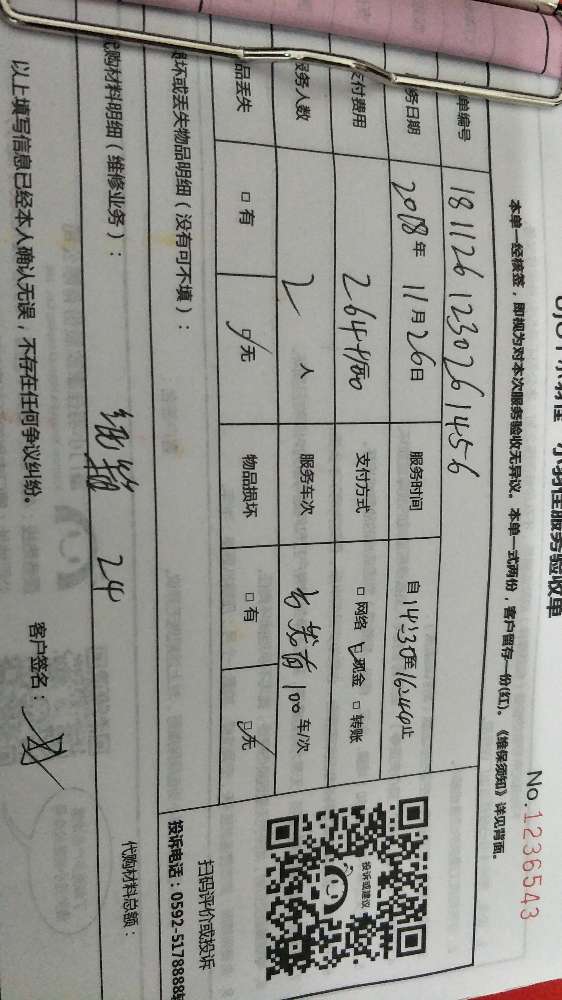 小羽佳服务验收单
No.1236543
本单一经核签，即视为对本次服务验收无异议。本单一式两份，客户留存一份(红)。《维保须知》详见背面。
单编号 1811261230261456
务日期 2018年 11月26日 服务时间 自14:30至16:44止
支付费用 支付方式 □ 网络 ☑ 现金 □ 转账
服务人数 2 人 服务车次 100 车/次
品丢失 □ 有 ☑ 无 物品损坏 □ 有 ☑ 无
投诉或建议
扫码评价或投诉
投诉电话：0592-5178888转
损坏或丢失物品明细（没有可不填）：
代购材料明细（维修业务）：
代购材料总额：
纸箱 24
以上填写信息已经本人确认无误，不存在任何争议纠纷。
客户签名：